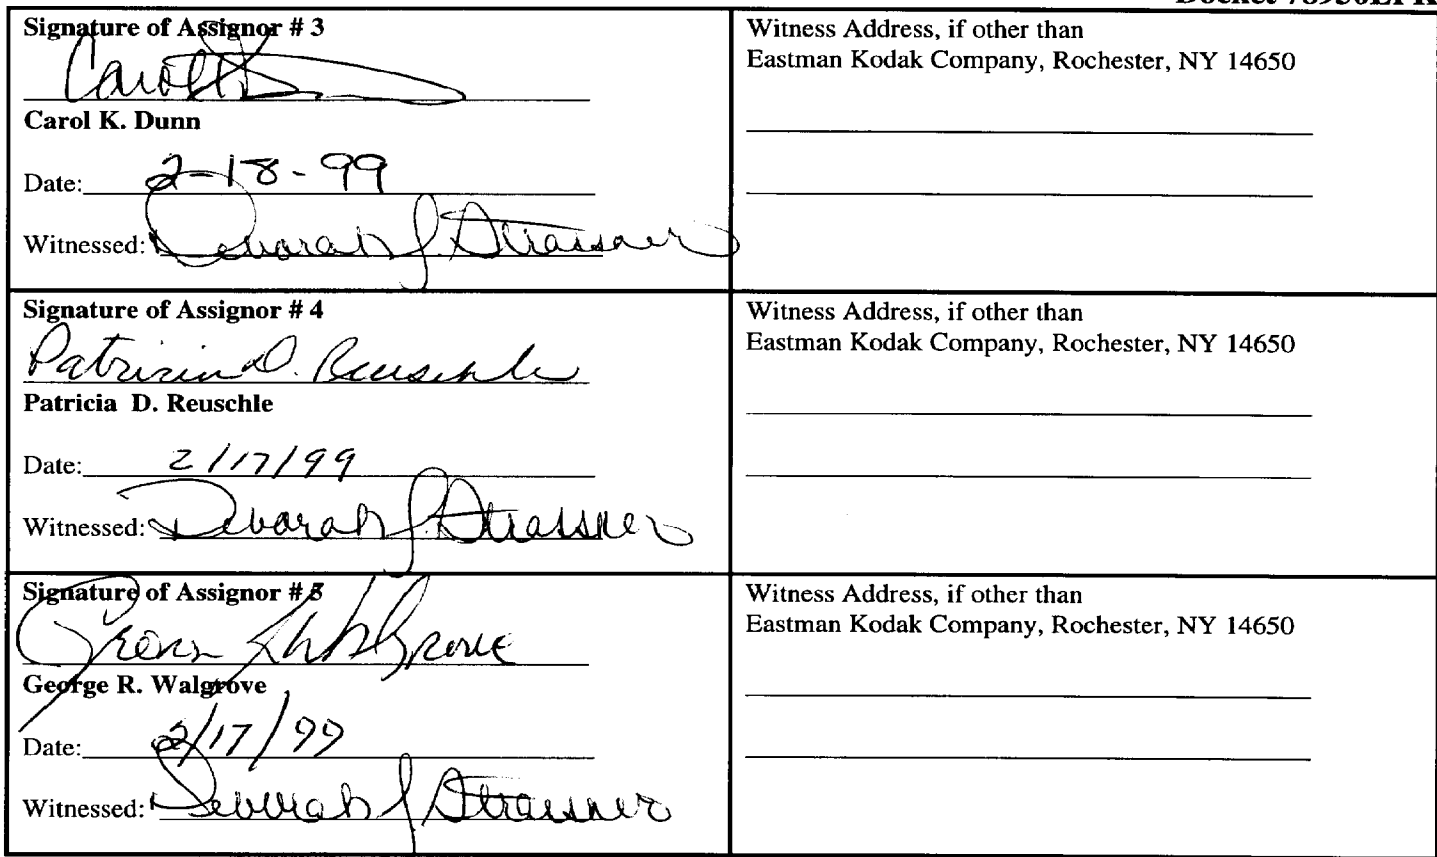 Signature of Assignor # 3
Carol K. Dunn
Date: 2-18-99
Witnessed: Deborah J. Strassner
Witness Address, if other than
Eastman Kodak Company, Rochester, NY 14650
Signature of Assignor # 4
Patricia D. Reuschle
Patricia D. Reuschle
Date: 2/17/99
Witnessed: Deborah J. Strassner
Witness Address, if other than
Eastman Kodak Company, Rochester, NY 14650
Signature of Assignor # 5
George R. Walgrove
Date: 2/17/99
Witnessed: Deborah J Strassner
Witness Address, if other than
Eastman Kodak Company, Rochester, NY 14650